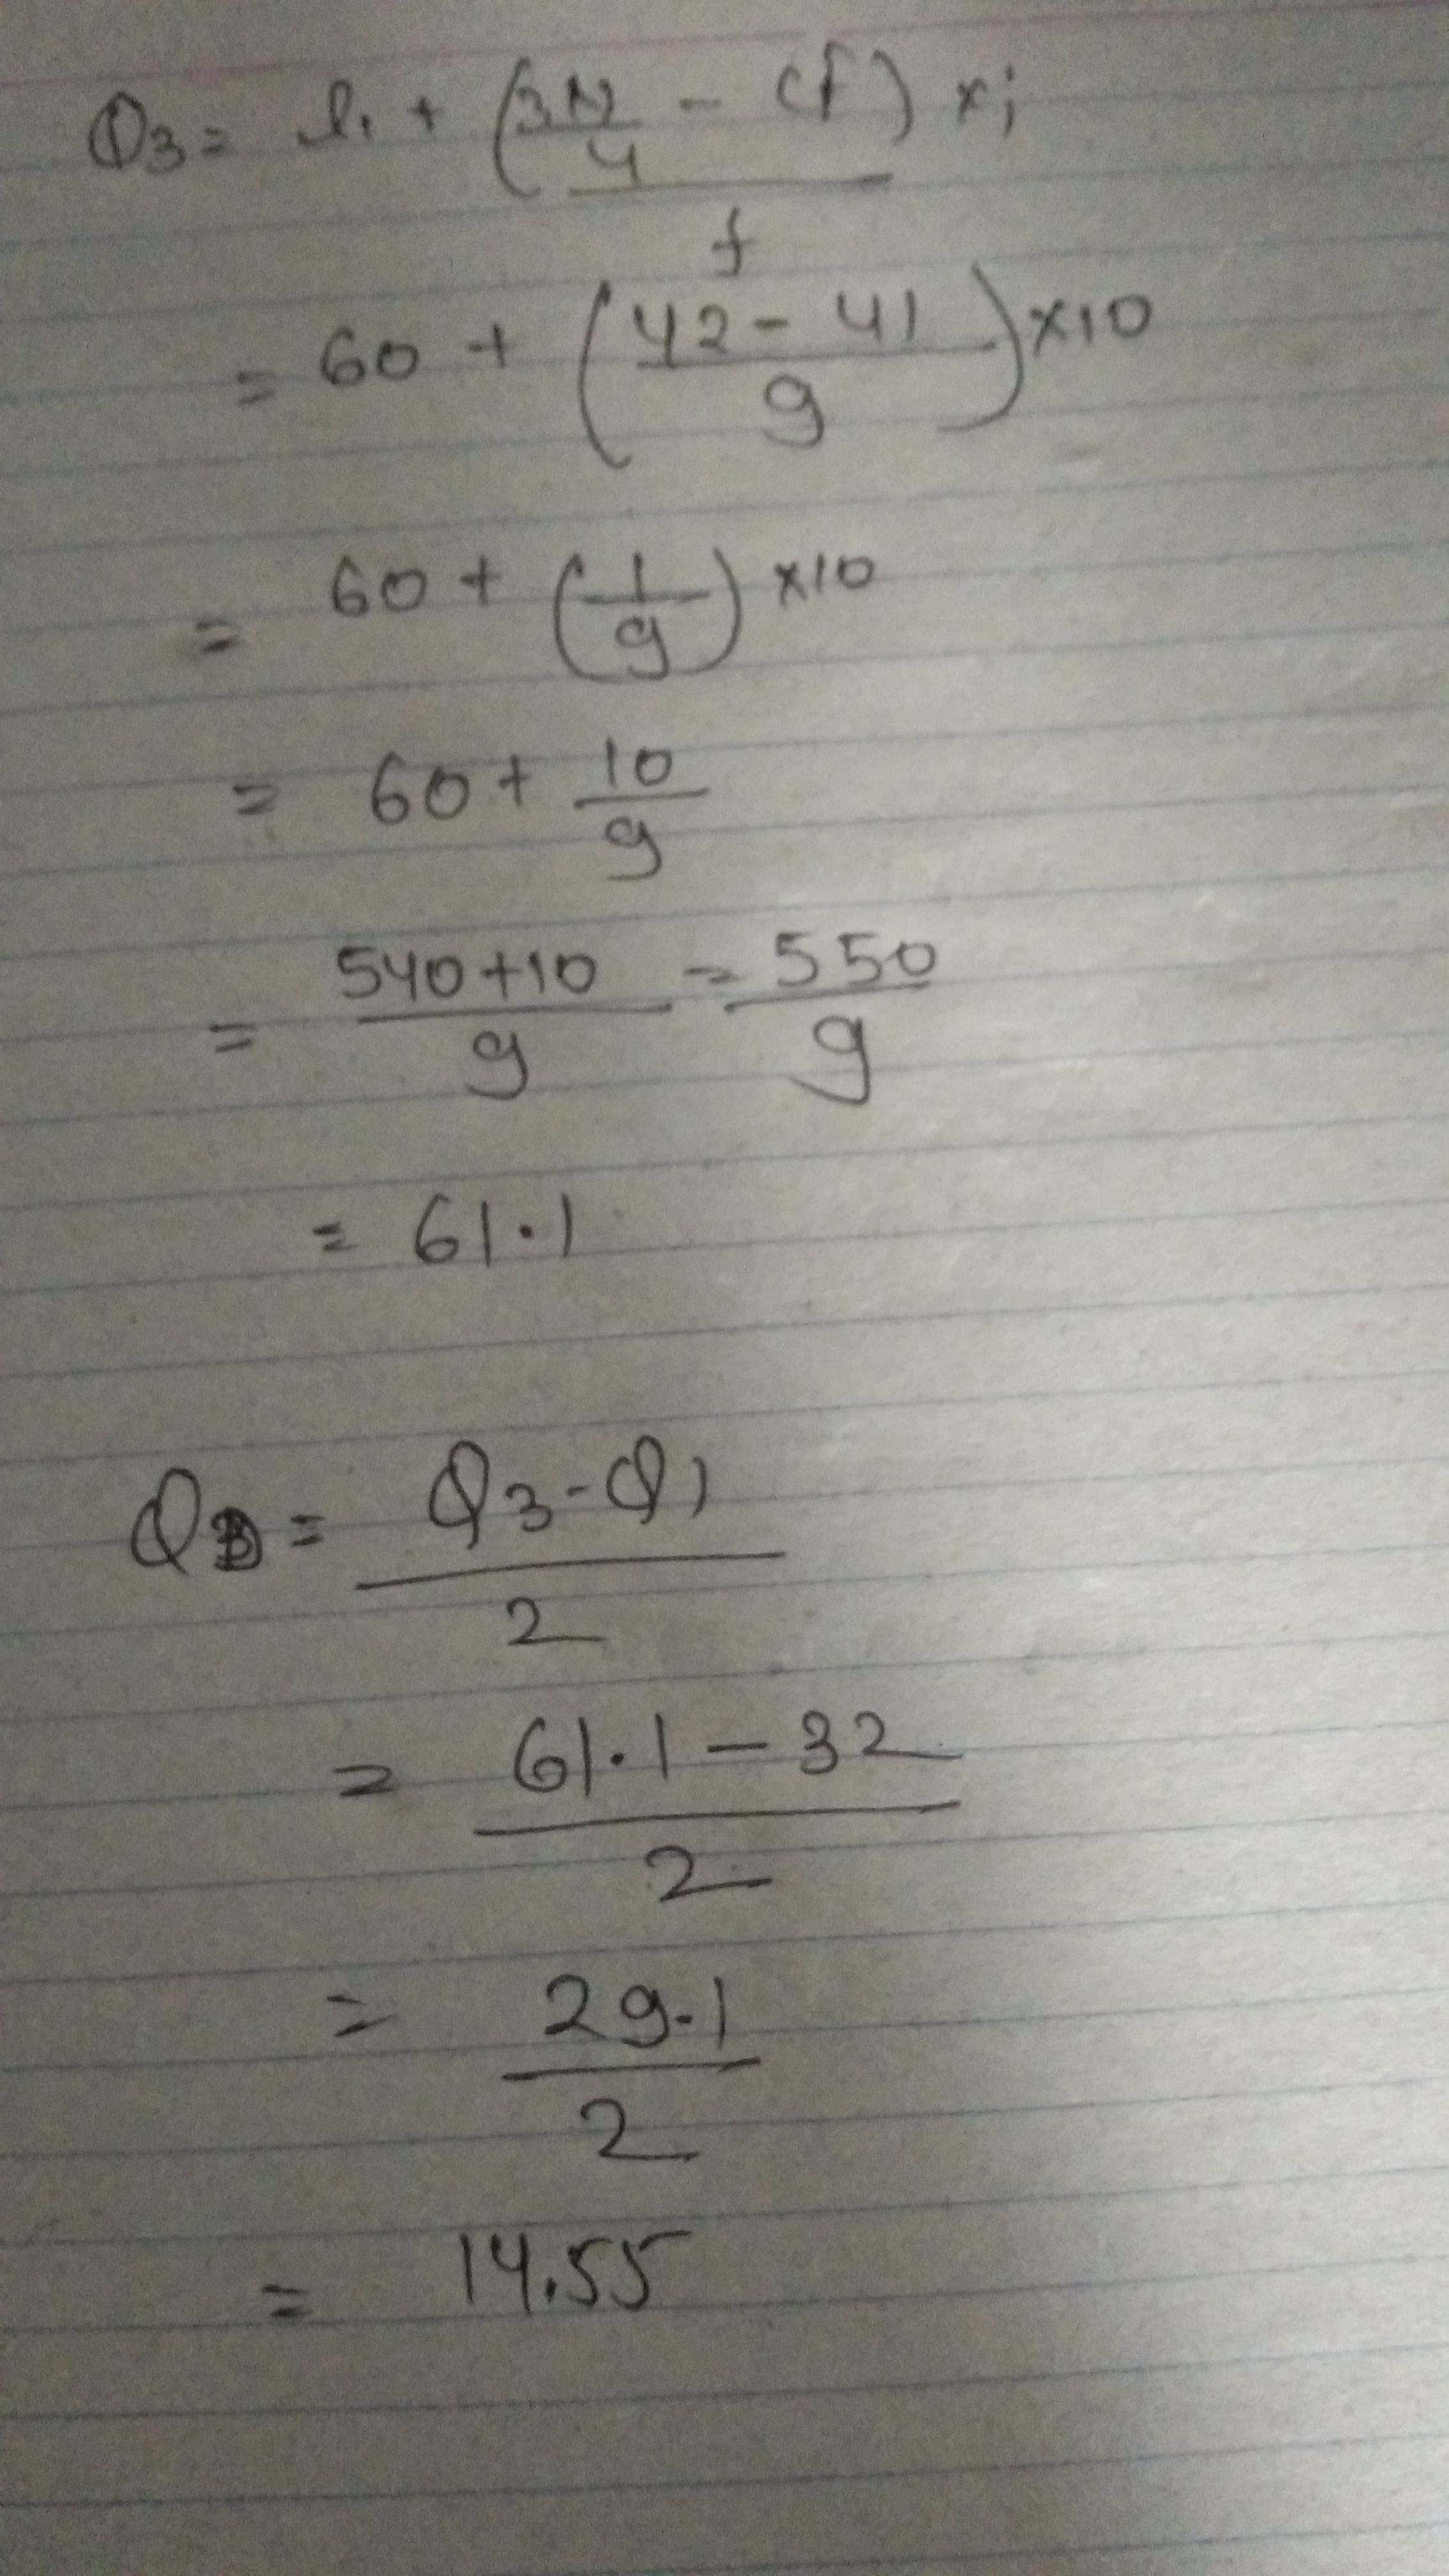 Q3 = l1 + (3N/4 - cf) × i
f
= 60 + (42 - 41 / 9) × 10
= 60 + (1/9) × 10
= 60 + 10/9
= 540 + 10 / 9 = 550 / 9
= 61.1
QD = Q3 - Q1 / 2
= 61.1 - 32 / 2
= 29.1 / 2
= 14.55